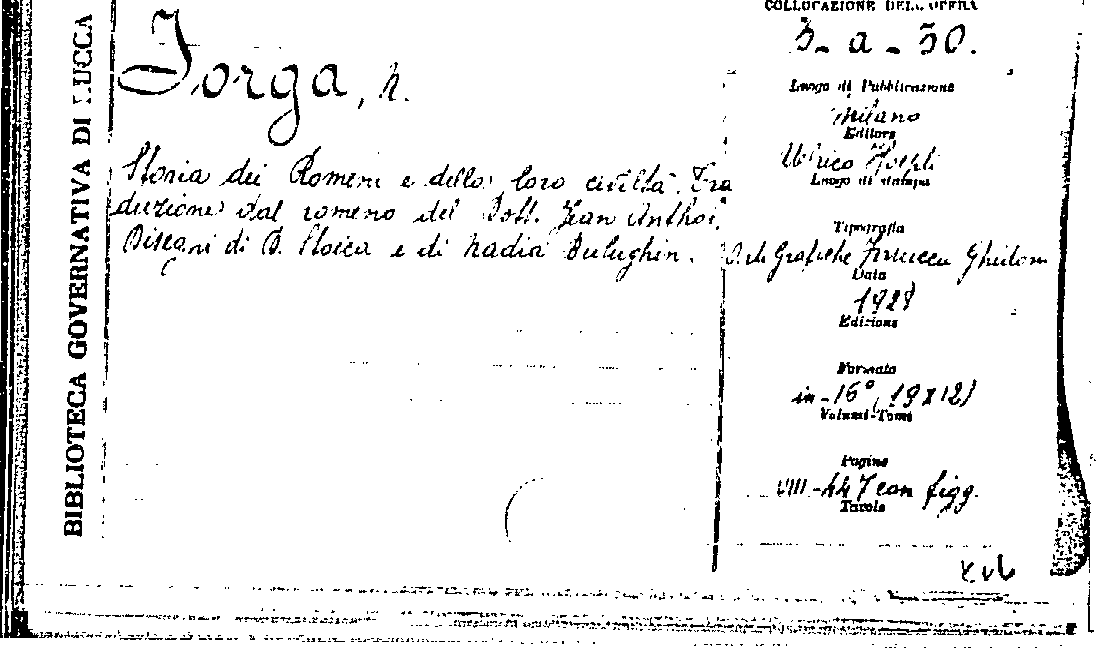 BIBLIOTECA GOVERNATIVA DI LUCCA
COLLOCAZIONE DELL'OPERA
3-a-30.
Jorga, N.
Storia dei Romeni e della loro civiltà. Tra
duzione dal romeno del Dott. Jean
Disegni di D. Stoica e di Nadia Bulughin.
Luogo di Pubblicazione
Milano
Editore
Ulrico Hoepli
Luogo di stampa
Tipografia
Arti Grafiche Ghidoni
Data
1928
Edizione
Formato
in-16°, (19x12)
Volumi-Tomi
Pagine
VIII-447 con figg.
Tavole